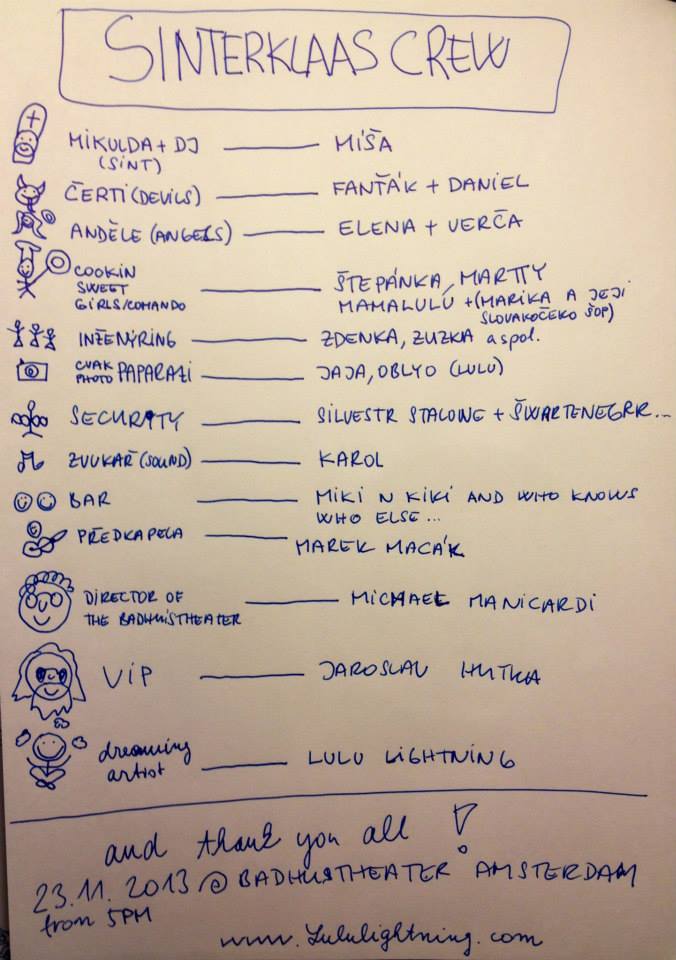 SINTERKLAAS CREW
MIKULDA + DJ —— MÍŠA
(SINT)
ČERTI (DEVILS) —— FANŤÁK + DANIEL
ANDĚLE (ANGELS) —— ELENA + VERČA
COOKIN
SWEET
GIRLS/COMANDO —— ŠTEPÁNKA, MARTTY
MAMALULU + (MARIKA A JEJÍ
SLOVAKOČEKO ŠOP)
INŽENÝRING —— ZDENKA, ZUZKA a spol.
CVAK
PHOTO PAPARAZI —— JAJA, OBLYO (LULU)
SECURITY —— SILVESTR STALONE + ŠWARTENEGRR...
ZVUKAŘ (SOUND) —— KAROL
BAR —— MIKI N KIKI AND WHO KNOWS
WHO ELSE...
PŘEDKAPELA —— MAREK MACÁK
DIRECTOR OF
THE BADHUISTHEATER —— MICHAEL MANICARDI
VIP —— JAROSLAV HUTKA
dreaming
artist —— LULU LIGHTNING
and thank you all !
23.11.2013 @ BADHUISTHEATER AMSTERDAM
from 5PM
www.Lululightning.com